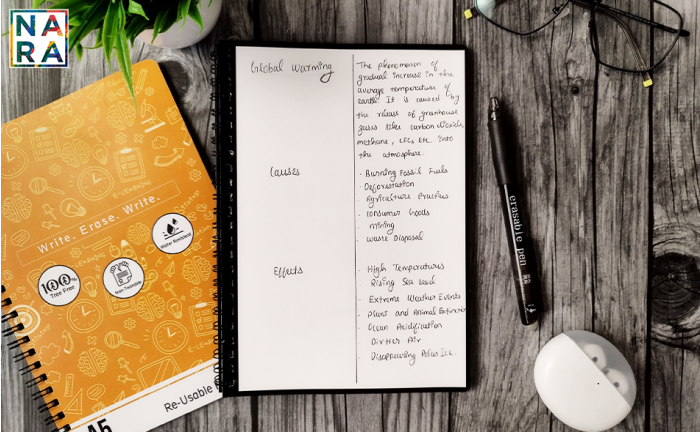 NA
RA
Write. Erase. Write.
100%
Tree Free
Non-Tearable
Water Resistant
A5
Re-Usable
Global Warming
The phenomenon of
gradual increase in the
average temperature of
earth. It is caused by
the release of greenhouse
gases like carbon dioxide,
methane, CFCs etc. into
the atmosphere.
Causes
· Burning Fossil Fuels
Deforestation
· Agriculture Practices
· Consumer Goods
Mining
· Waste Disposal
Effects
· High Temperatures
Rising Sea Level
· Extreme Weather Events
· Plant and Animal Extinction
· Ocean Acidification
· Dirtier Air
· Disappearing Polar Ice
erasable pen